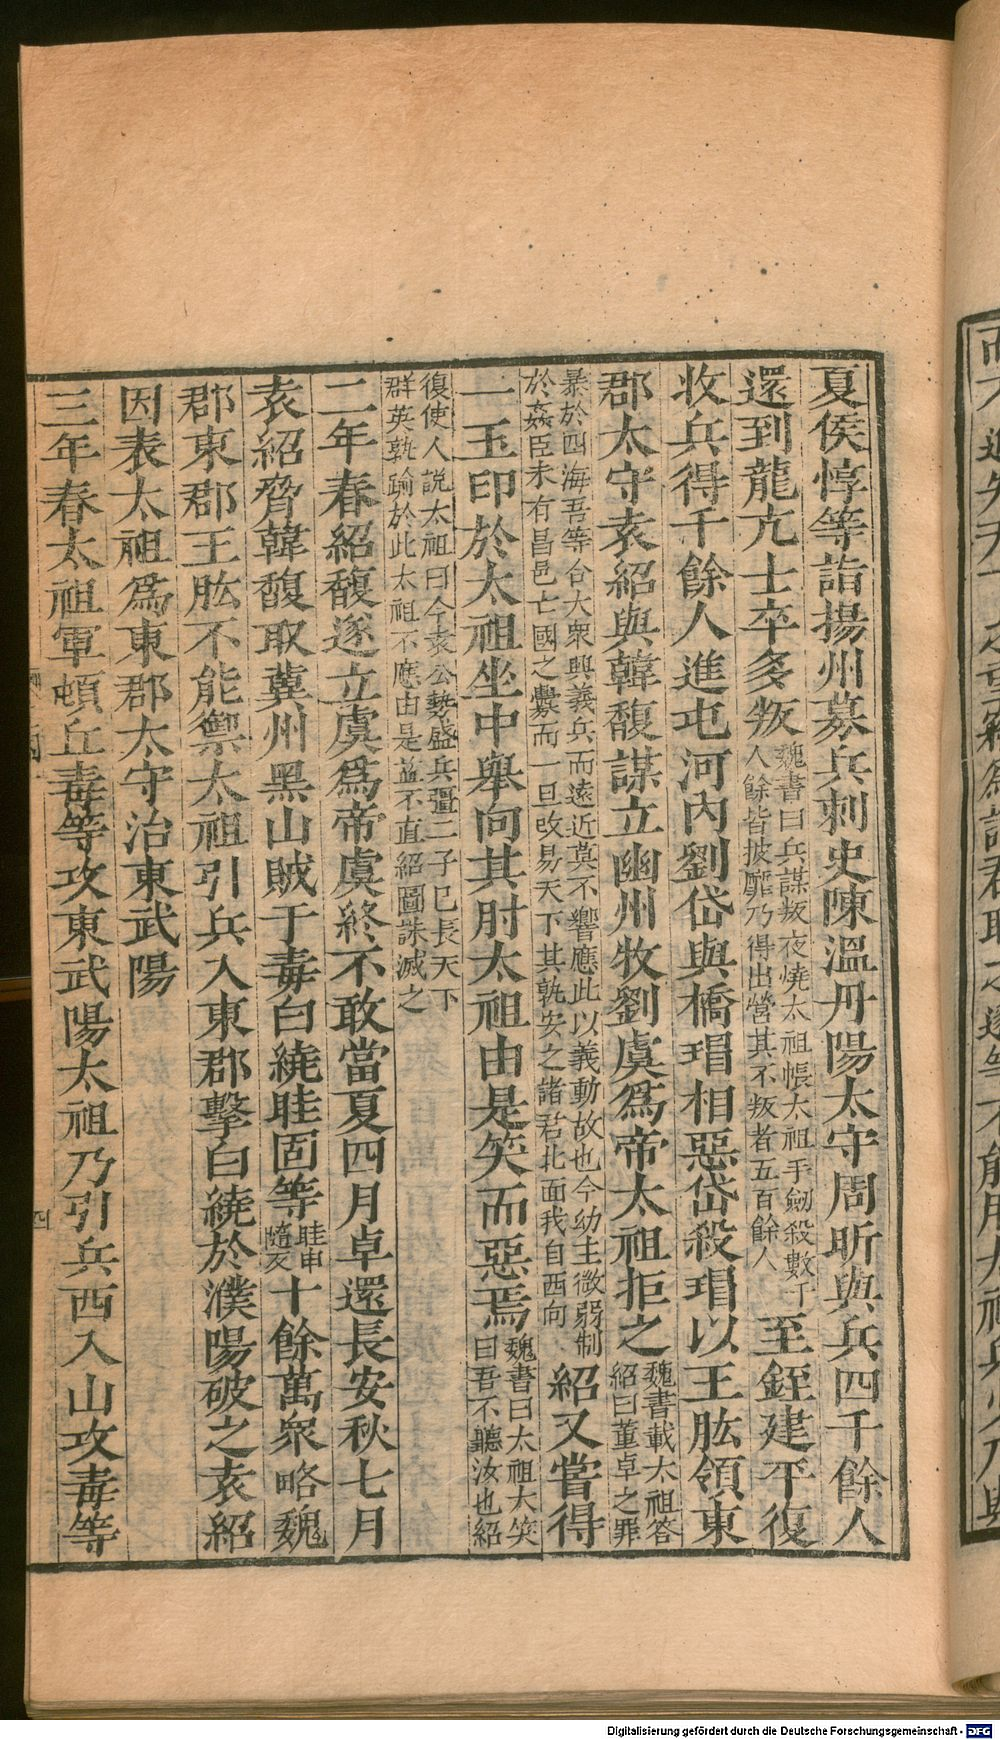 夏侯惇等詣揚州募兵刺史陳溫丹陽太守周昕與兵四千餘人
還到龍亢士卒多叛魏書曰兵謀叛夜燒太祖帳太祖手劒殺數十人餘皆披靡乃得出營其不叛者五百餘人至銍建平復
收兵得千餘人進屯河內劉岱與橋瑁相惡岱殺瑁以王肱領東
郡太守袁紹與韓馥謀立幽州牧劉虞爲帝太祖拒之魏書載太祖答紹曰董卓之罪
暴於四海吾等合大衆興義兵而遠近莫不響應此以義動故也今幼主微弱制於姦臣未有昌邑亡國之釁而一旦改易天下其孰安之諸君北面我自西向紹又嘗得
一玉印於太祖坐中舉向其肘太祖由是笑而惡焉魏書曰太祖大笑曰吾不聽汝也紹
復使人說太祖曰今袁公勢盛兵彊二子已長天下群英孰踰於此太祖不應由是益不直紹圖誅滅之
二年春紹馥遂立虞爲帝虞終不敢當夏四月卓還長安秋七月
袁紹脅韓馥取冀州黑山賊于毒白繞眭固等眭申隨反十餘萬衆略魏
郡東郡王肱不能禦太祖引兵入東郡擊白繞於濮陽破之袁紹
因表太祖爲東郡太守治東武陽
三年春太祖軍頓丘毒等攻東武陽太祖乃引兵西入山攻毒等
四
Digitalisierung gefördert durch die Deutsche Forschungsgemeinschaft - DFG